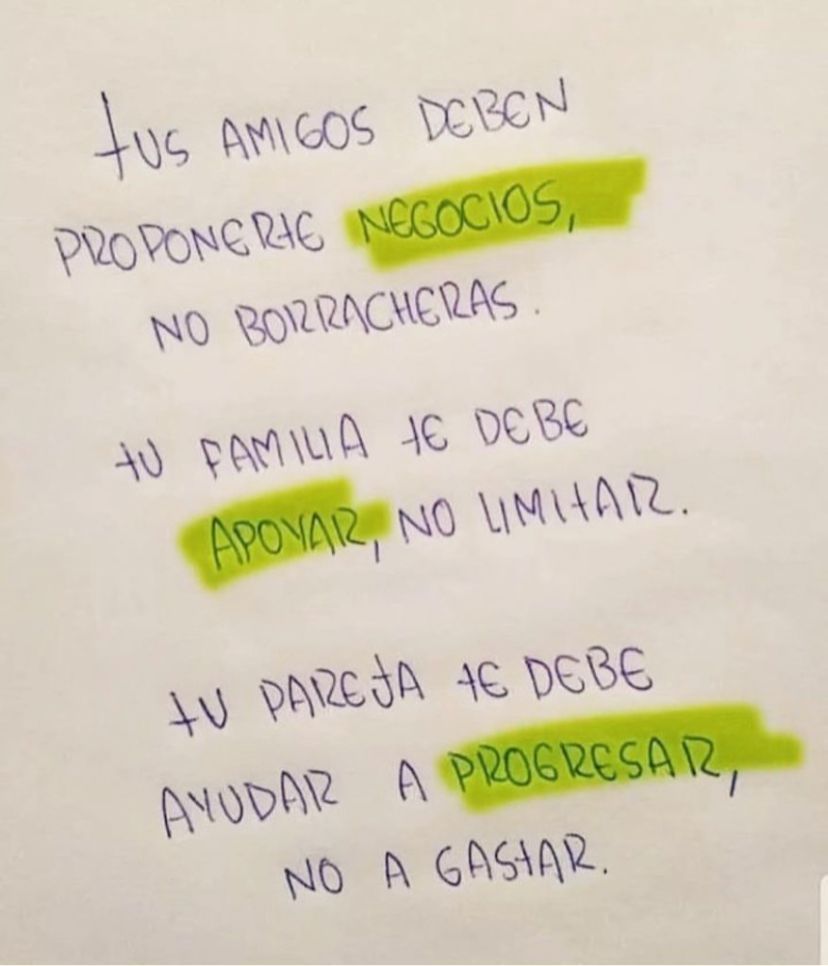 tus AMIGOS DEBEN
PROPONERtE NEGOCIOS,
NO BORRACHERAS.
tU FAMILIA tE DEBE
APOYAR, NO LIMItAR.
tU PAREJA tE DEBE
AYUDAR A PROGRESAR,
NO A GAStAR.